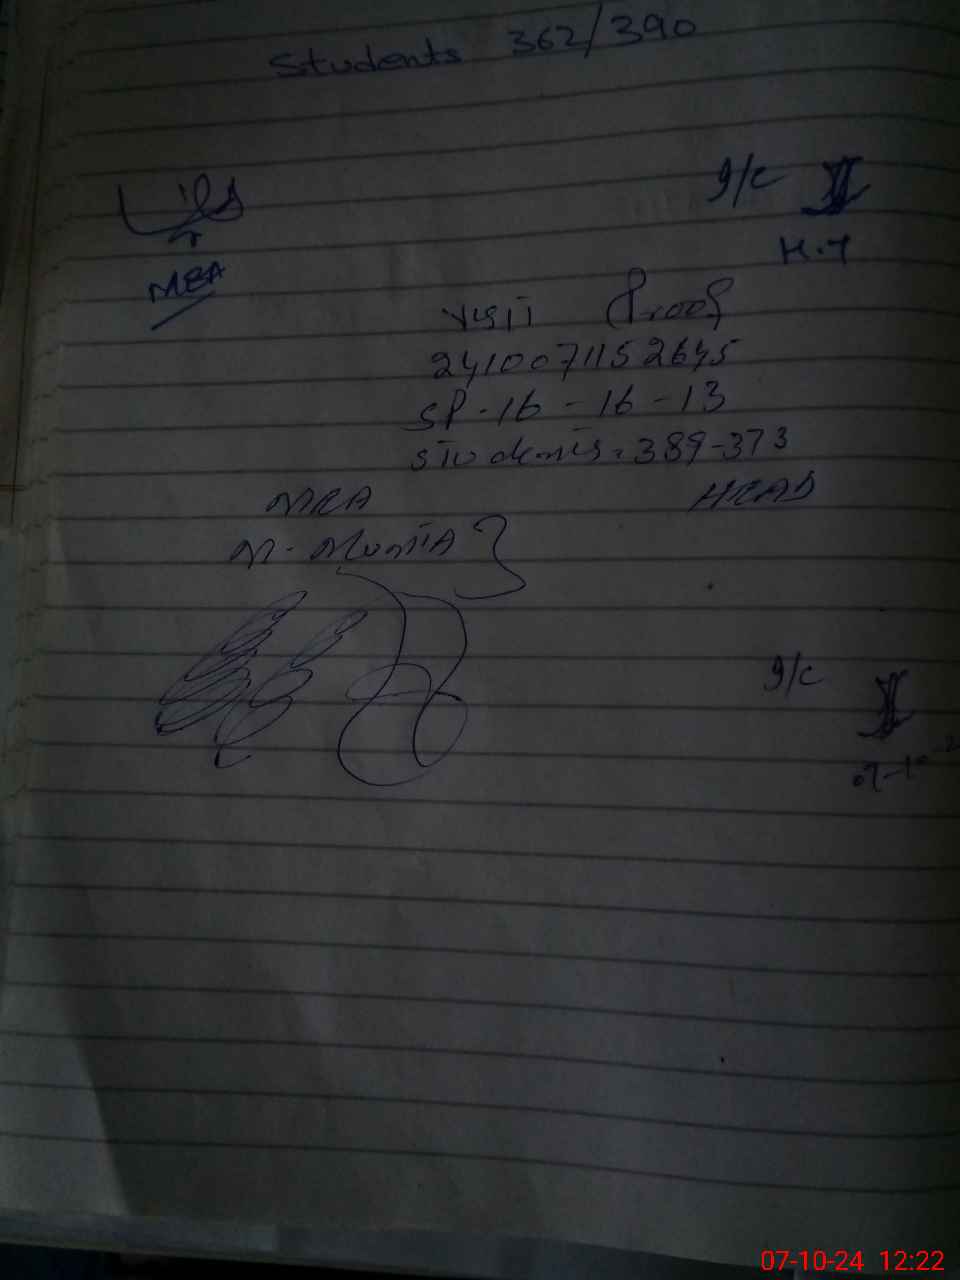 Students 362/390
I/C
MEA H.T
Visit Proof
2410071152645
SP-16-16-13
Students. 389-373
MEA HEAD
I/C
07-10-2
07-10-24 12:22